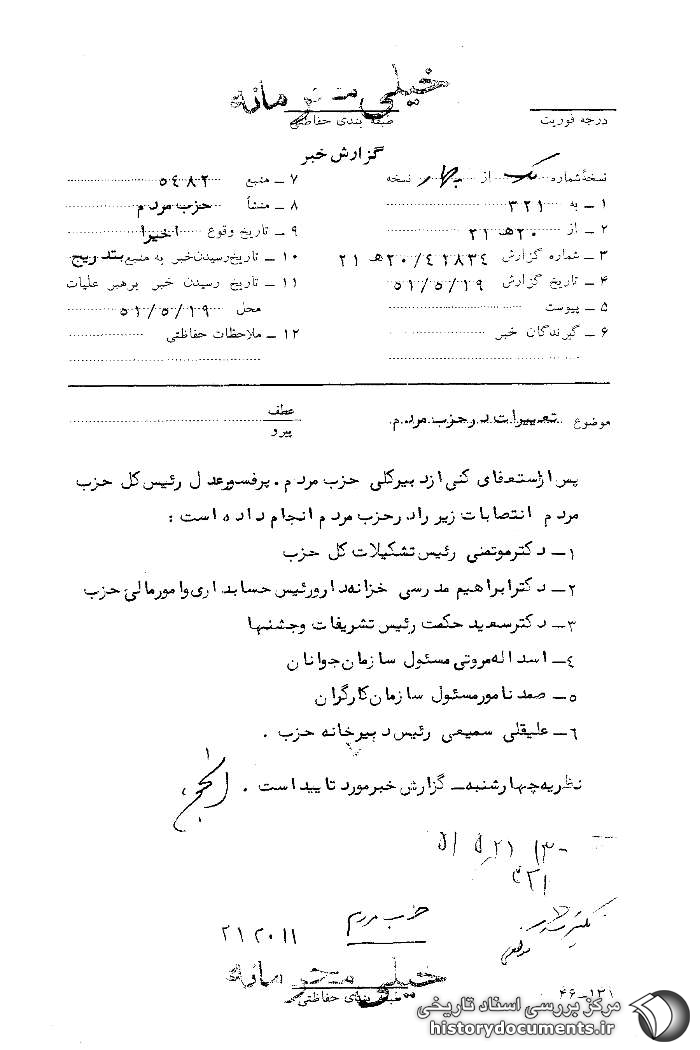 خیلی محرمانه
طبقه بندی حفاظتی
درجه فوریت
گزارش خبر
نسخهٔ شماره یک از چهار نسخه
۱ ـ به ۳۲۱
۲ ـ از ۲۰ هـ ۲۱
۳ ـ شماره گزارش ۲۰/۴۲۸۳۴ هـ ۲۱
۴ ـ تاریخ گزارش ۵۱/۵/۱۹
۵ ـ پیوست
۶ ـ گیرندگان خبر
۷ ـ منبع ۵۴۸۲
۸ ـ منشأ حزب مردم
۹ ـ تاریخ وقوع اخیرا
۱۰ ـ تاریخ رسیدن خبر به منبع بتدریج
۱۱ ـ تاریخ رسیدن خبر برهبر عملیات
محل ۵۱/۵/۱۹
۱۲ ـ ملاحظات حفاظتی
موضوع تغییرات در حزب مردم
عطف
پیرو
پس از استعفای کنی از دبیرکلی حزب مردم . پرفسور عدل رئیس کل حزب
مردم انتصابات زیر را در حزب مردم انجام داده است :
۱ـ دکتر موتمنی رئیس تشکیلات کل حزب
۲ـ دکتر ابراهیم مدرسی خزانه دار و رئیس حسابداری و امور مالی حزب
۳ـ دکتر سعید حکمت رئیس تشریفات و جشنها
۴ـ اسداله مروتی مسئول سازمان جوانان
۵ـ صمد نامور مسئول سازمان کارگران
۶ـ علیقلی سمیعی رئیس دبیرخانه حزب .
نظریه چهارشنبه ـ گزارش خبر مورد تایید است .
۳۲۱
حزب مردم
۲۱۲۰۱۱
خیلی محرمانه
طبقه بندی حفاظتی
۴۶-۱۲۱
مرکز بررسی اسناد تاریخی
historydocuments.ir